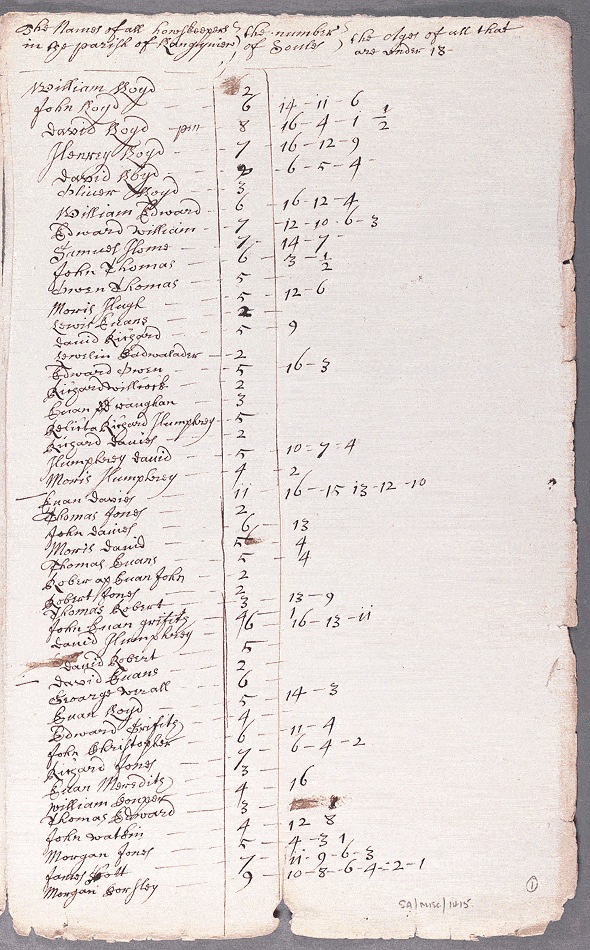 The Names of all howskeepers the number the Ages of all that
in the parish of of Soules are under 18
William Boyd 2
John Boyd 6 14 - 11 - 6
david Boyd 8 16 - 4 - 1 1/2
Henrey Boyd 7 16 - 12 - 9
david Boyd 6 - 5 - 4
Oliver Boyd 3
William Edward 6 16 - 12 - 4
Edward William 7 12 - 10 - 6 - 3
Samuel Home 7 14 - 7
John Thomas 6 3 - 1/2
Owen Thomas 5
Moris Hugh 5 12 - 6
Lewis Euans 2
david Richard 5 9
Lewelin Cadwalader 2
Edward Owen 5 16 - 3
Richard 2
Euan vaughan 3
Relicta Richard Humphrey 5
Richard davies 2
Humphrey david 5 10 - 7 - 4
Moris Humphrey 4 2
Euan davies 11 16 - 15 13 - 12 - 10
Thomas Jones 2
John davies 6 13
Moris david 5 4
Thomas Euans 5 4
Rober ap Euan John 2
Robert Jones 2
Thomas Robert 3 13 - 9
John Euan griffith 4 1
david Humphrey 6 16 - 13 - 11
david Robert 5
david Euans 2
George 6
Euan Boyd 5 14 - 3
Edward Grifith 4
John Christopher 6 11 - 4
Richard Jones 7 6 - 4 - 2
Euan Meredith 3
William 4 16
Thomas Edward 3
John watkin 4 12 8
Morgan Jones 5 4 - 3 1
James 7 11 - 9 - 6 - 3
Morgan 9 10 - 8 - 6 - 4 - 2 - 1
SA/MISC/1415
1